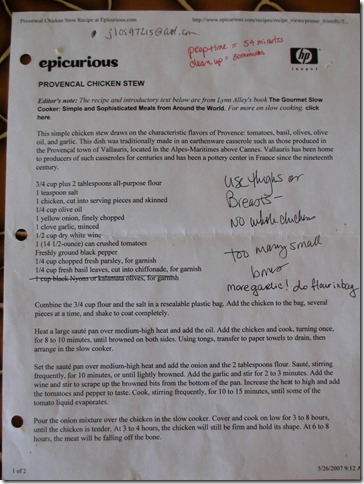 Provencal Chicken Stew Recipe at Epicurious.com
http://www.epicurious.com/recipes/recipe_views/printer_friendly/2...
prep time = 54 minutes
clean up =
epicurious
hp
invent
PROVENCAL CHICKEN STEW
Editor's note: The recipe and introductory text below are from Lynn Alley's book The Gourmet Slow
Cooker: Simple and Sophisticated Meals from Around the World. For more on slow cooking, click
here.
This simple chicken stew draws on the characteristic flavors of Provence: tomatoes, basil, olives, olive
oil, and garlic. This dish was traditionally made in an earthenware casserole such as those produced in
the Provençal town of Vallauris, located in the Alpes-Maritimes above Cannes. Vallauris has been home
to producers of such casseroles for centuries and has been a pottery center in France since the nineteenth
century.
3/4 cup plus 2 tablespoons all-purpose flour
1 teaspoon salt
1 chicken, cut into serving pieces and skinned
1/4 cup olive oil
1 yellow onion, finely chopped
1 clove garlic, minced
1/2 cup dry white wine
1 (14 1/2-ounce) can crushed tomatoes
Freshly ground black pepper
1/4 cup chopped fresh parsley, for garnish
1/4 cup fresh basil leaves, cut into chiffonade, for garnish
1 cup black Nyons or kalamata olives, for garnish
Use thighs or
Breasts -
No whole chicken
too many small
bones
more garlic! do flour in bag
Combine the 3/4 cup flour and the salt in a resealable plastic bag. Add the chicken to the bag, several
pieces at a time, and shake to coat completely.
Heat a large sauté pan over medium-high heat and add the oil. Add the chicken and cook, turning once,
for 8 to 10 minutes, until browned on both sides. Using tongs, transfer to paper towels to drain, then
arrange in the slow cooker.
Set the sauté pan over medium-high heat and add the onion and the 2 tablespoons flour. Sauté, stirring
frequently, for 10 minutes, or until lightly browned. Add the garlic and stir for 2 to 3 minutes. Add the
wine and stir to scrape up the browned bits from the bottom of the pan. Increase the heat to high and add
the tomatoes and pepper to taste. Cook, stirring frequently, for 10 to 15 minutes, until some of the
tomato liquid evaporates.
Pour the onion mixture over the chicken in the slow cooker. Cover and cook on low for 3 to 8 hours,
until the chicken is tender. At 3 to 4 hours, the chicken will still be firm and hold its shape. At 6 to 8
hours, the meat will be falling off the bone.
1 of 2
5/26/2007 9:12 A